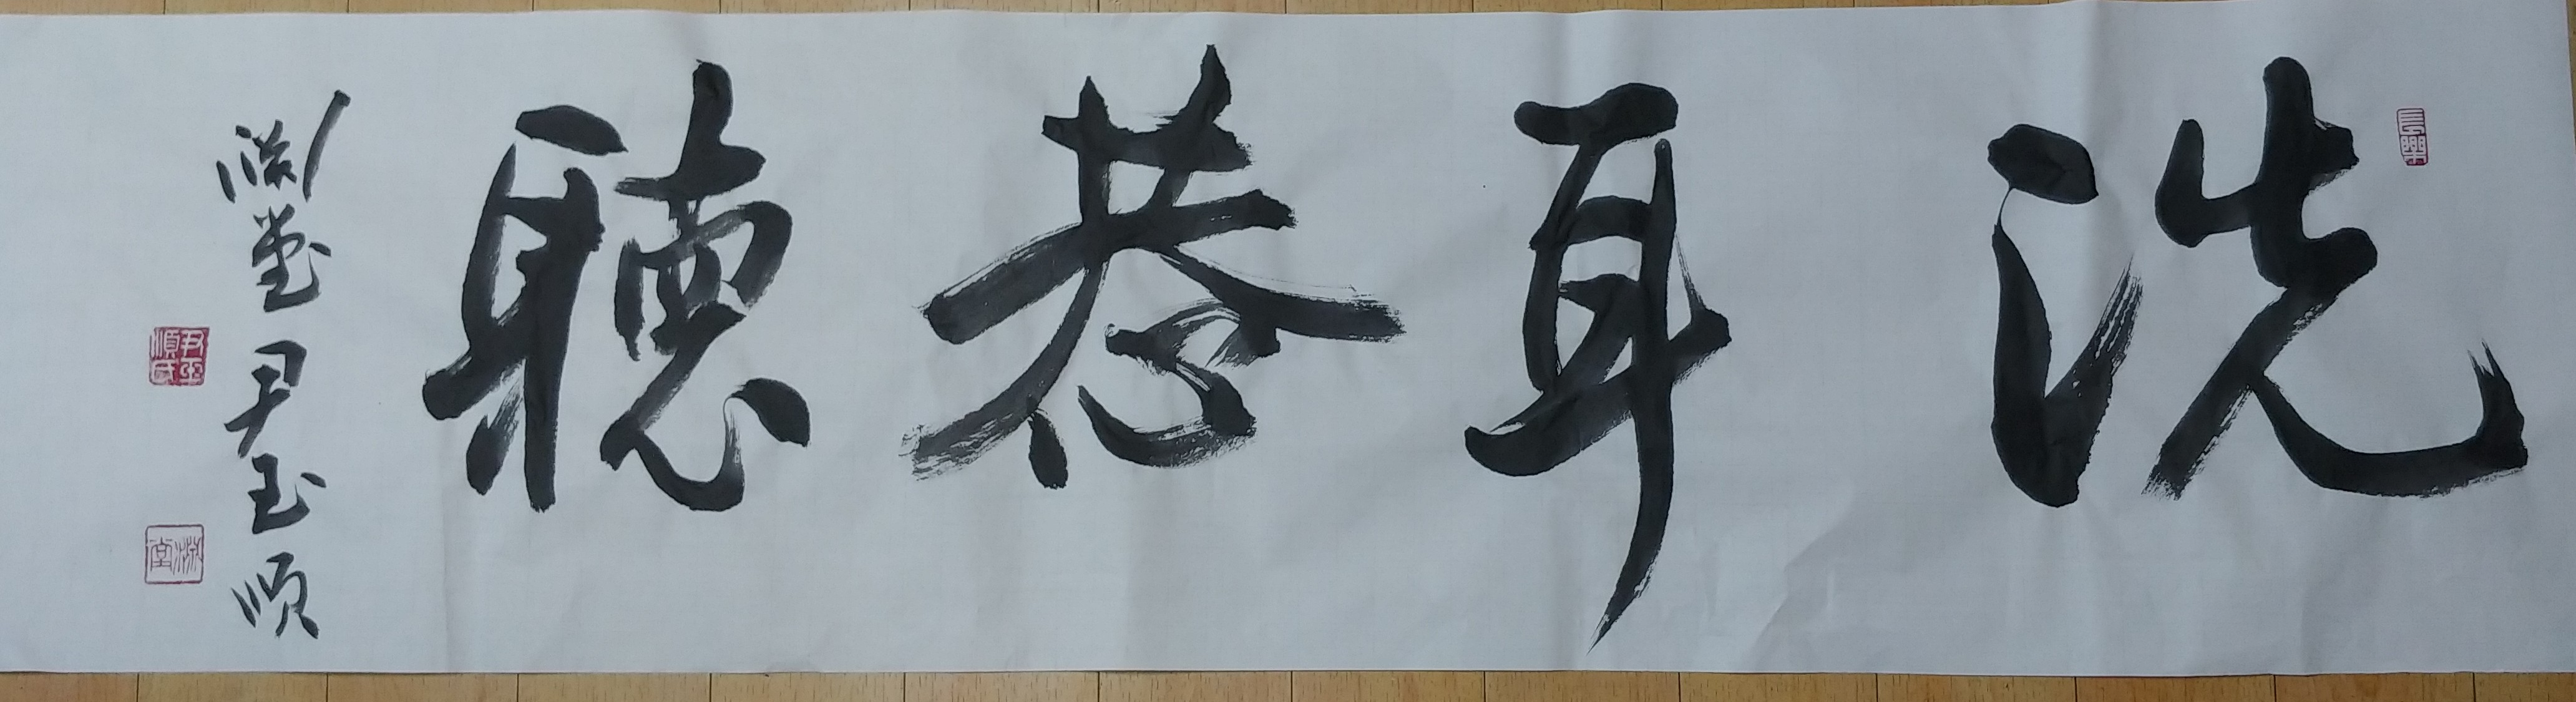 洗耳恭聽
淵堂 尹玉順
長樂
尹玉順印
淵堂